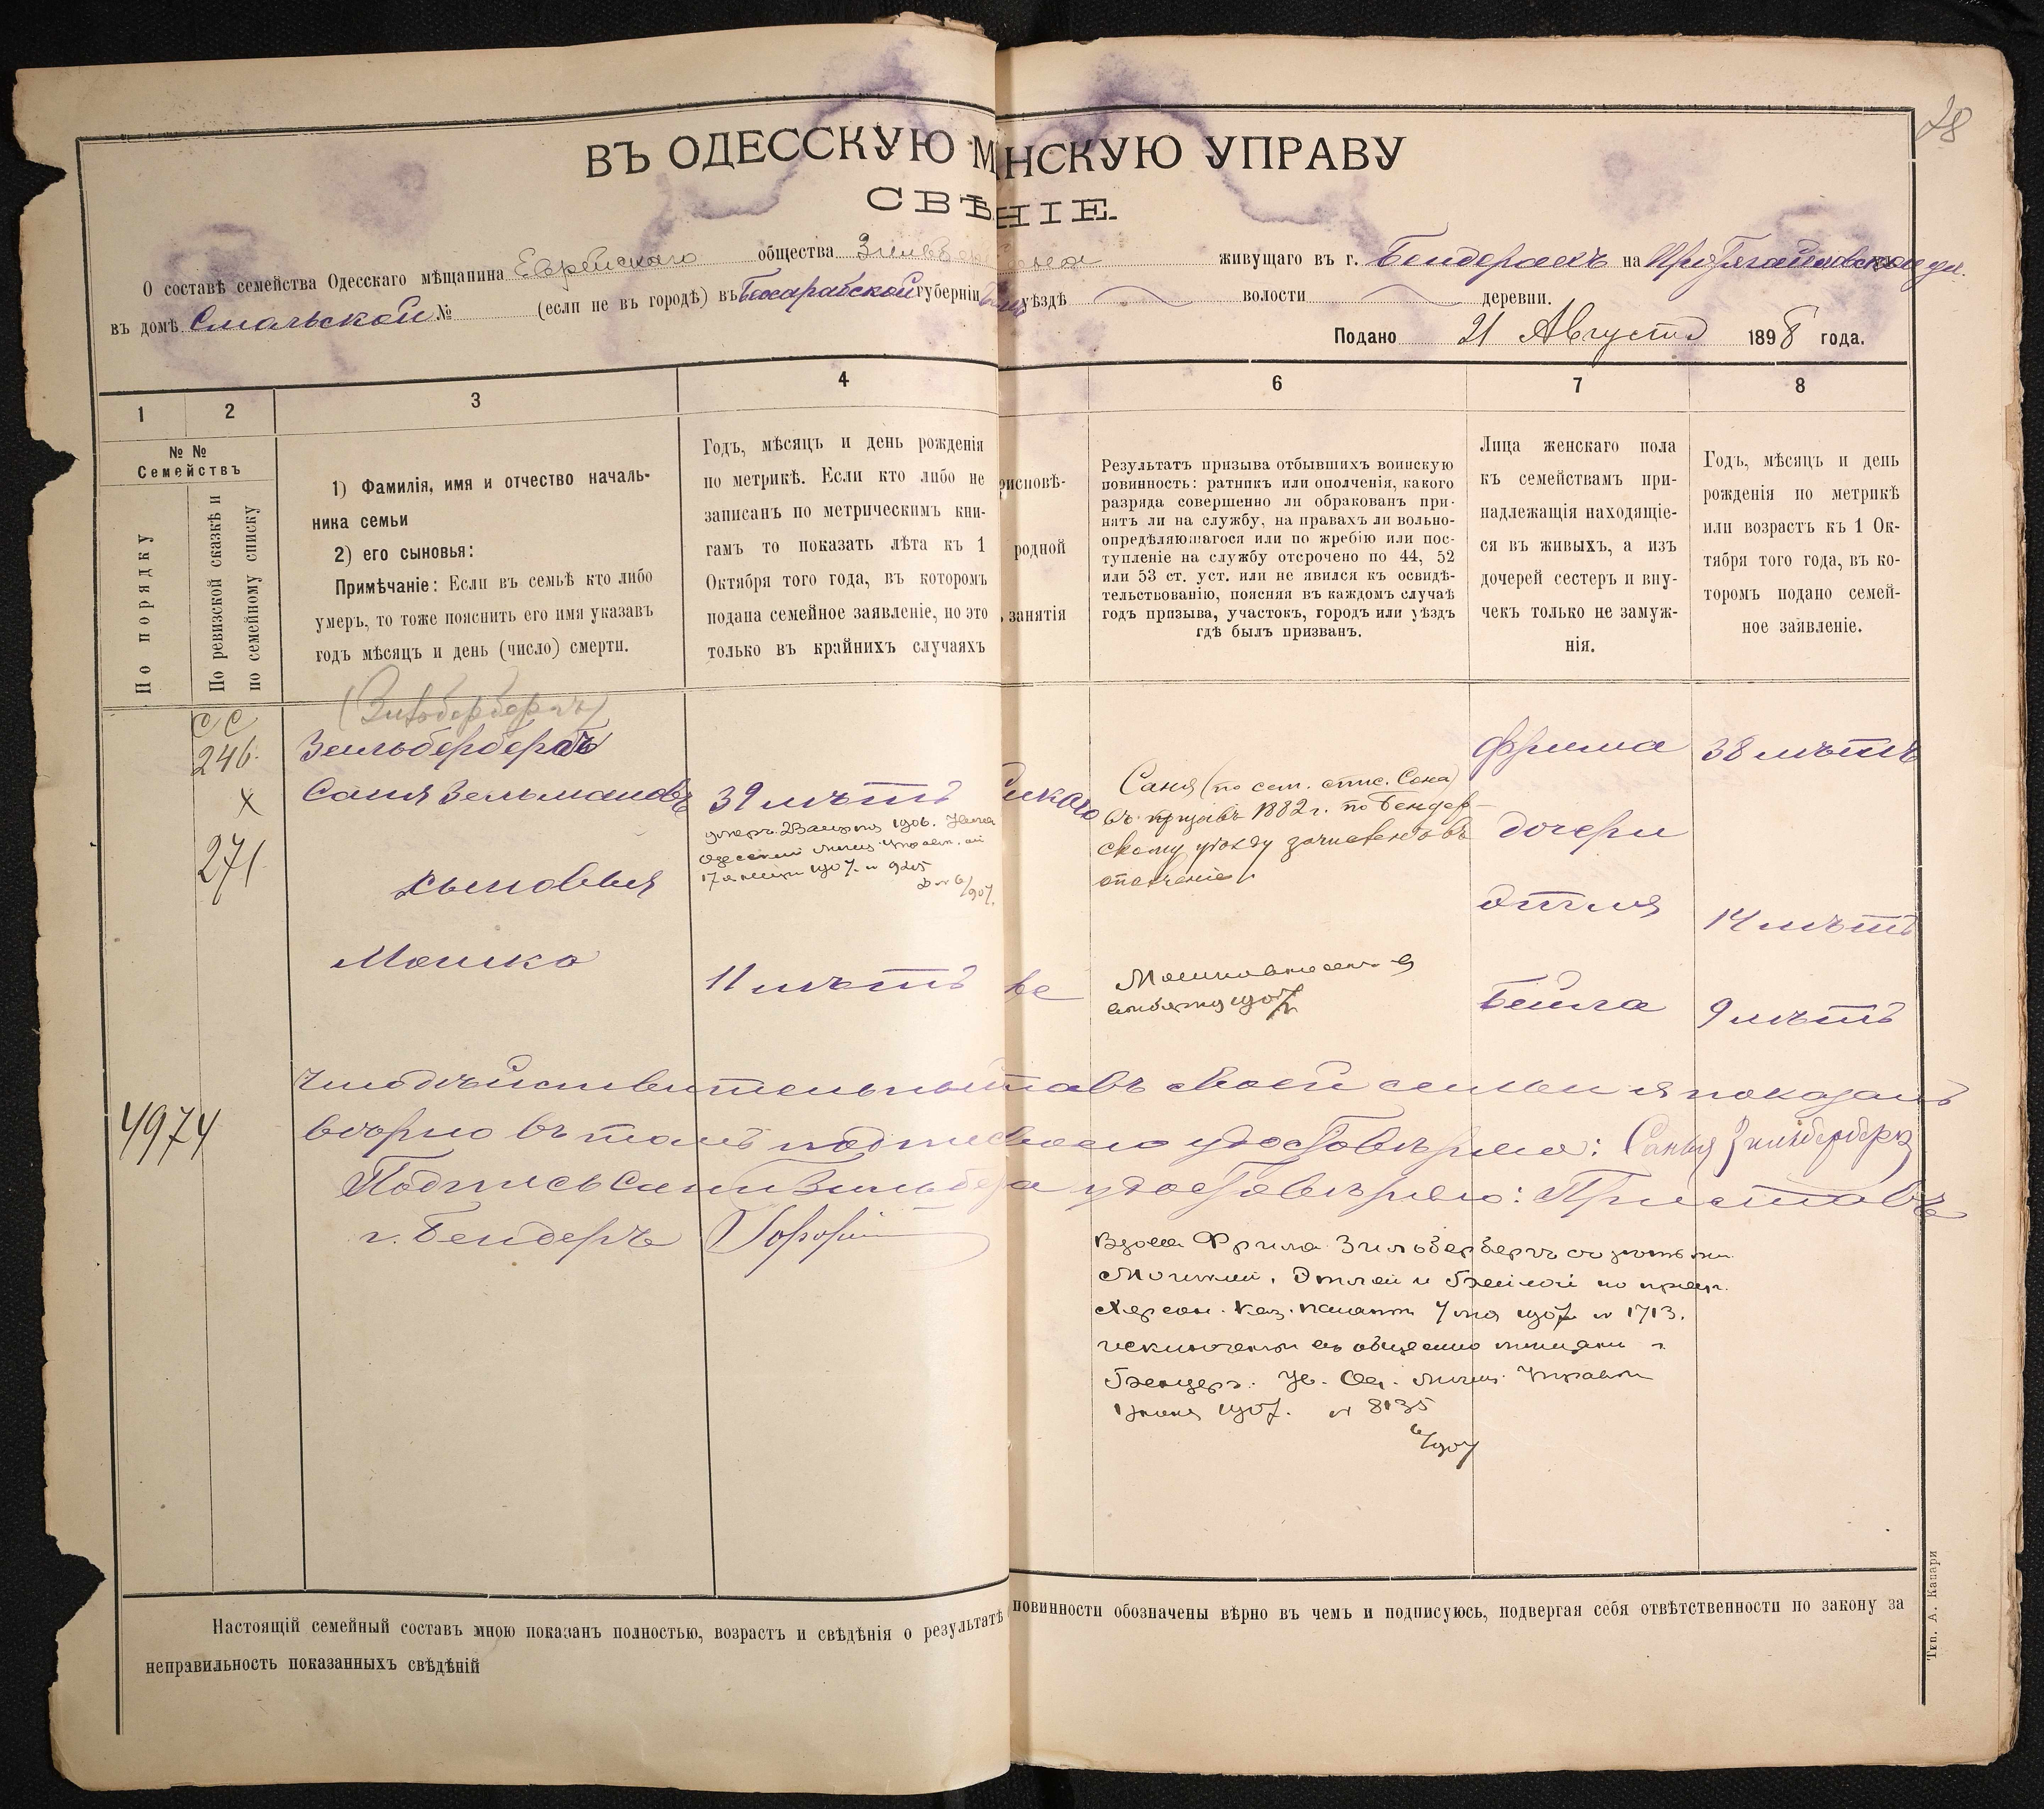 28
ВЪ ОДЕССКУЮ М НСКУЮ УПРАВУ
СВѢ НІЕ.
О составѣ семейства Одесскаго мѣщанина Еврейскаго общества живущаго въ г. Бендерахъ на ул.
въ домѣ Смольской № (если не въ городѣ) въ Бессарабской губерніи уѣздѣ волости деревни.
Подано 21 Августа 1898 года.
1 2 3 4 6 7 8
№ №
Семействъ
По порядку
По ревизской сказкѣ и
по семейному списку
1) Фамилія, имя и отчество началь-
ника семьи
2) его сыновья:
Примѣчаніе: Если въ семьѣ кто либо
умеръ, то тоже пояснить его имя указавъ
годъ мѣсяцъ и день (число) смерти.
Годъ, мѣсяцъ и день рожденія
по метрикѣ. Если кто либо не
записанъ по метрическимъ кни-
гамъ то показать лѣта къ 1
Октября того года, въ которомъ
подана семейное заявленіе, но это
только въ крайнихъ случаяхъ
рисповѣ-
родной
занятія
Результатъ призыва отбывшихъ воинскую
повинность: ратникъ или ополченія, какого
разряда совершенно ли обракованъ при-
нятъ ли на службу, на правахъ ли вольно-
опредѣляющагося или по жребію или пос-
тупленіе на службу отсрочено по 44, 52
или 53 ст. уст. или не явился къ освидѣ-
тельствованію, поясняя въ каждомъ случаѣ
годъ призыва, участокъ, городъ или уѣздъ
гдѣ былъ призванъ.
Лица женскаго пола
къ семействамъ при-
надлежащія находящіе-
ся въ живыхъ, а изъ
дочерей сестеръ и вну-
чекъ только не замуж-
нія.
Годъ, мѣсяцъ и день
рожденія по метрикѣ
или возрастъ къ 1 Ок-
тября того года, въ ко-
торомъ подано семей-
ное заявленіе.
сс
246
х
271
(Зильбербергъ)
Зельбербергъ
Саня Зельмановъ 39 лѣтъ
умеръ 23 1906.
Одесской Мѣщ. Управы
17 1907 № 9205
Саня (по сем. спис. Сона)
въ призывъ 1882 г. по Бендер-
скому уѣзду зачисленъ въ
ополченіе
Фрима 38 лѣтъ
дочери
Этля 14 лѣтъ
Бейла 9 лѣтъ
Сыновья
Мошко 11 лѣтъ
1907
4974
Что дѣйствительный составъ своей семьи я показалъ
вѣрно въ томъ подписью удостовѣряю: Саня Зильберберг
Подпись Сани Зильбе а удостовѣряю: Приставъ
г. Бендеръ
Вдова Фрима Зильберберъ съ дѣтьми
Мошкой, Этлей и Бейлой по пред.
Херсон. Каз. палаты 7 мая 1907 № 1713.
исключены въ общество мѣщанъ г.
Бендеръ. Ув. Од. Мѣщ. Управы
1 іюня 1907. № 8135
6/907
Настоящій семейный составъ мною показанъ полностью, возрастъ и свѣдѣнія о результатѣ повинности обозначены вѣрно въ чемъ и подписуюсь, подвергая себя отвѣтственности по закону за
неправильность показанныхъ свѣдѣній
Тип. А. Капари